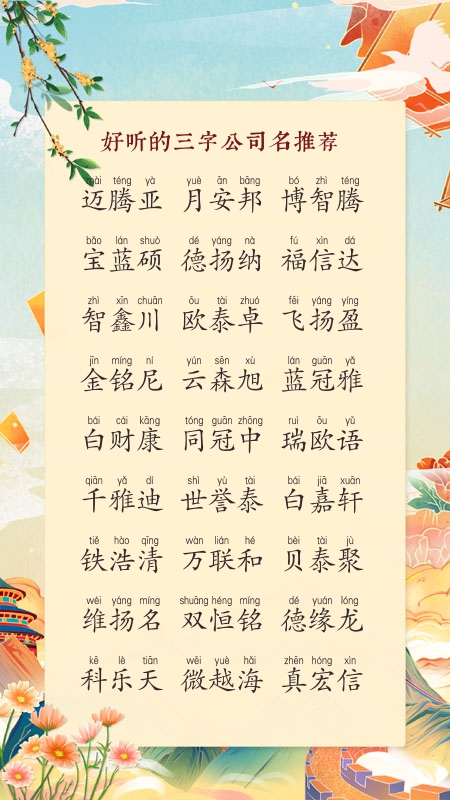 好听的三字公司名推荐
mài téng yà yuè ān bāng bó zhì téng
迈腾亚 月安邦 博智腾
bǎo lán shuò dé yáng nà fú xìn dá
宝蓝硕 德扬纳 福信达
zhì xīn chuān ōu tài zhuó fēi yáng yíng
智鑫川 欧泰卓 飞扬盈
jīn míng ní yún sēn xù lán guān yǎ
金铭尼 云森旭 蓝冠雅
bái cái kāng tóng guān zhōng ruì ōu yǔ
白财康 同冠中 瑞欧语
qiān yǎ dí shì yù tài bái jiā xuān
千雅迪 世誉泰 白嘉轩
tiě hào qīng wàn lián hé bèi tài jù
铁浩清 万联和 贝泰聚
wéi yáng míng shuāng héng míng dé yuán lóng
维扬名 双恒铭 德缘龙
kē lè tiān wēi yuè hǎi zhēn hóng xìn
科乐天 微越海 真宏信